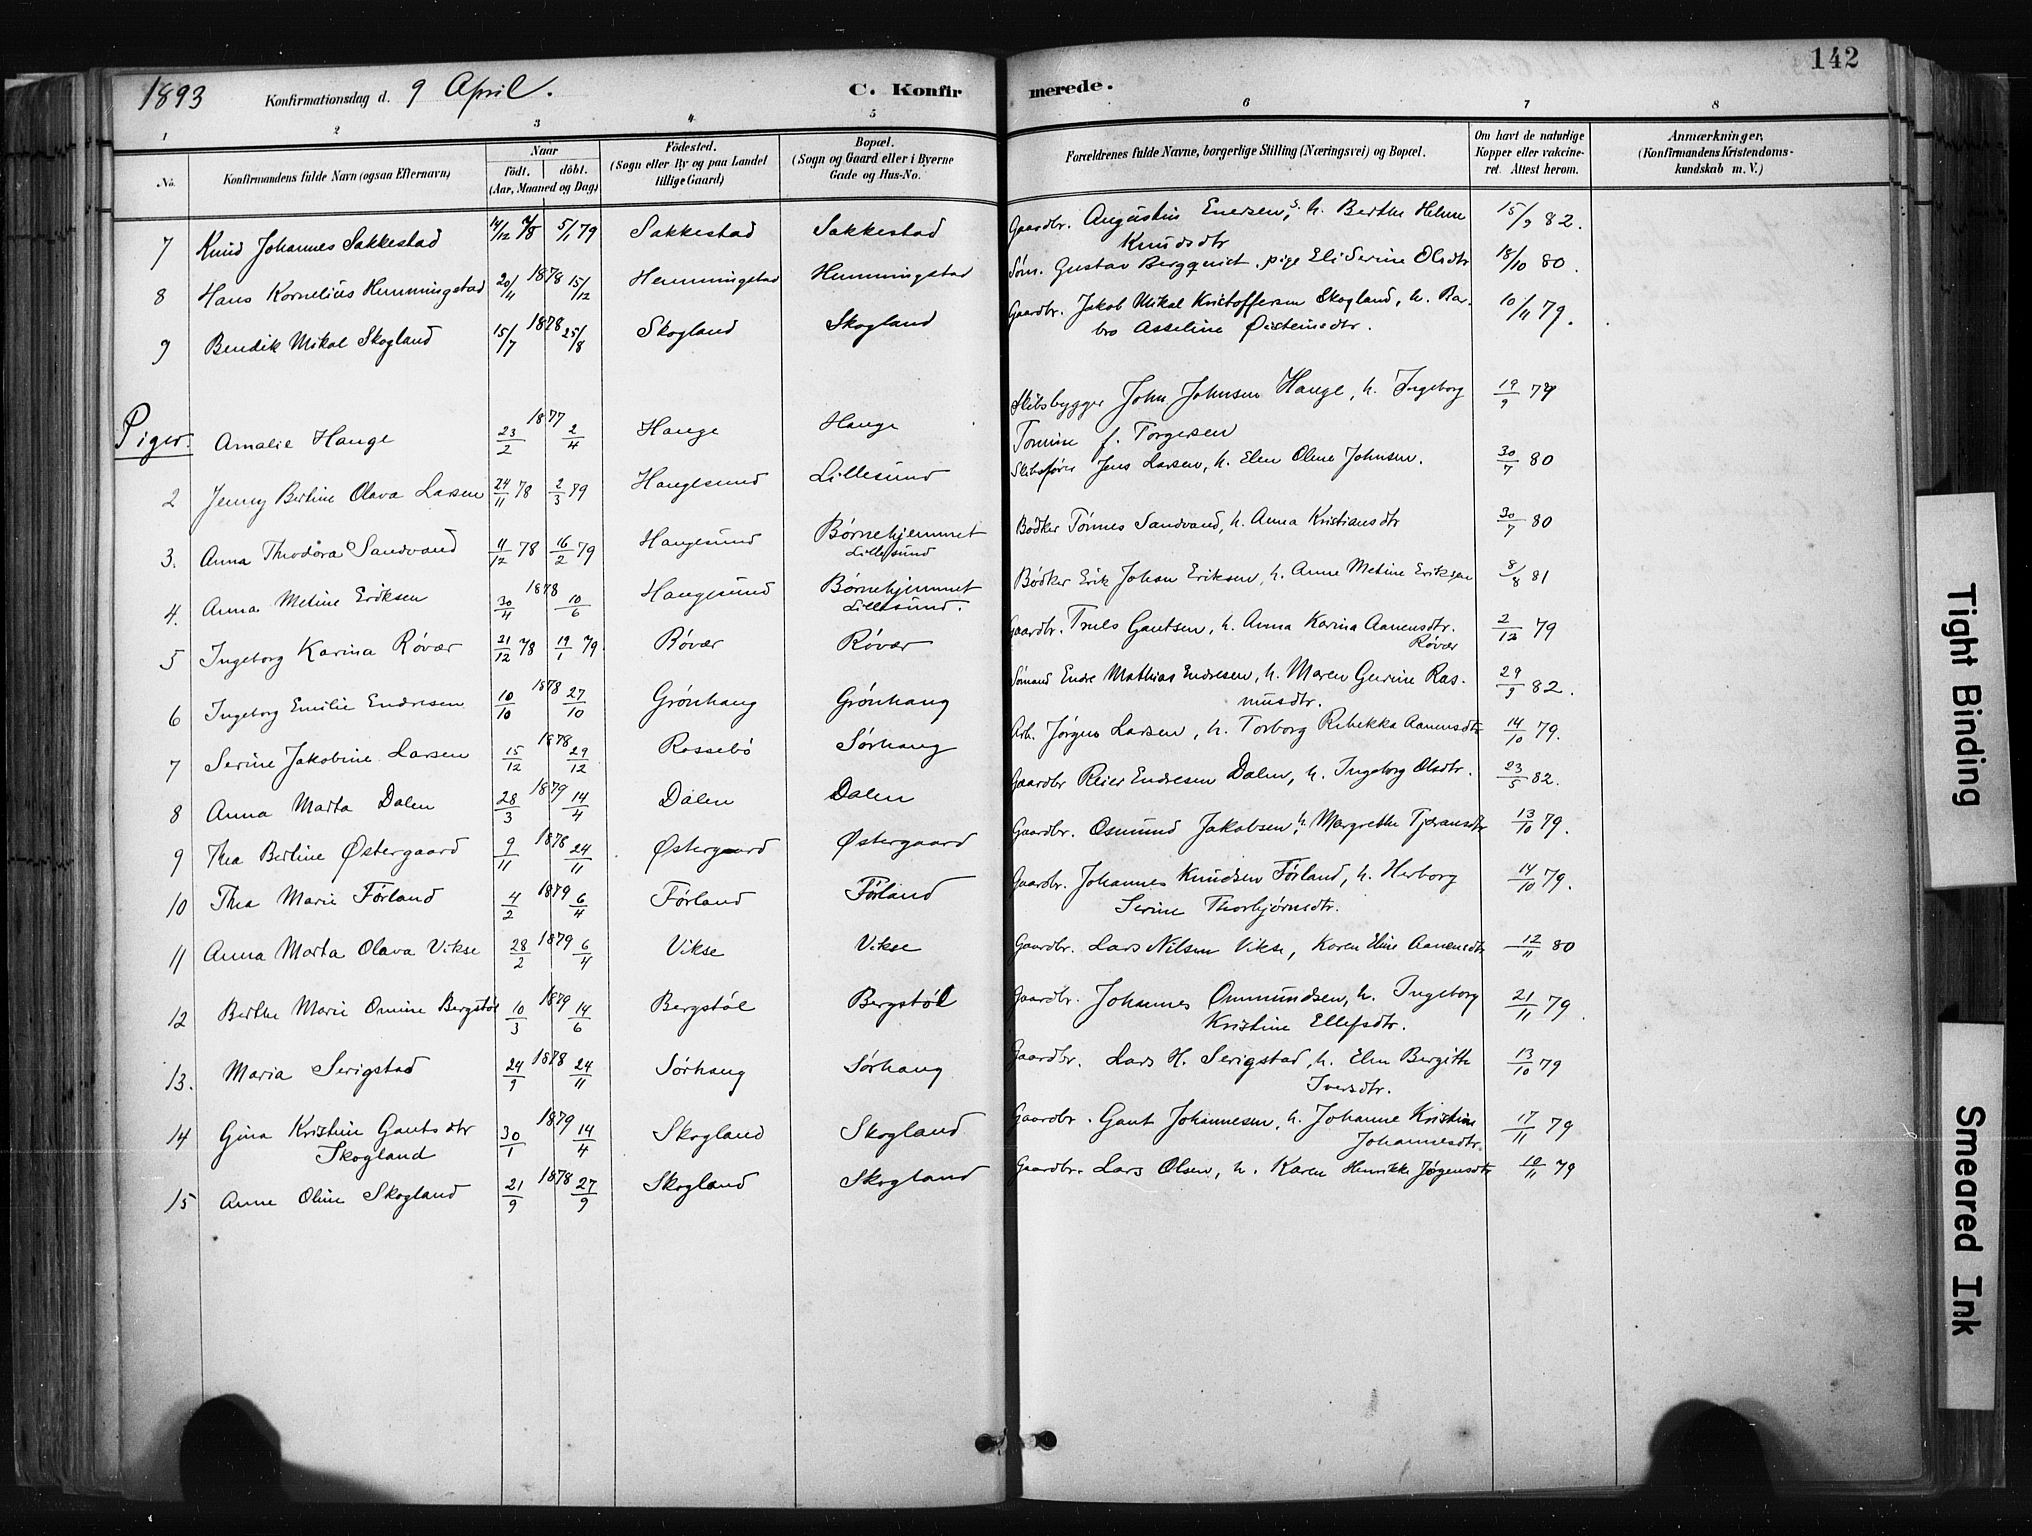 1893 Konfirmationsdag d. 9 April. C. Konfir merede. 142
1 2 3 4 5 6 7 8
No. Konfirmandens fulde Navn (ogsaa Efternavn) Naar födt. döbt. (Aar, Maaned og Dag) Födested. (Sogn eller By og paa Landet tillige Gaard) Bopæl. (Sogn og Gaard eller i Byerne Gade og Hus-No. Forældrenes fulde Navne, borgerlige Stilling (Næringsvei) og Bopæl. Om havt de naturlige Kopper eller vakcineret. Attest herom. Anmærkninger, (Konfirmandens Kristendomskundskab m. V.)
7 Knud Johannes Sakkestad 14/12 78 5/1 79 Sakkestad Sakkestad Gaardbr. Augustin Enersen, h. Berthe Helene 15/9 82.
Knudsdtr
8 Hans Kornelius Hemmingstad 20/11 1878 15/12 Hemmingstad Hemmingstad Søm. Gustav Bergqvist, pige Eli Serine Olsdtr 18/10 80.
9 Bendik Mikal Skogland 15/7 1878 25/8 Skogland Skogland Gaardbr. Jakob Mikal Kristoffersen Skogland, h. Ba- 10/11 79.
bro Asseline Øisteinsdtr.
Piger. Amalie Hauge 23/2 1877 2/4 Hauge Hauge Skibsbygger John Johnsen Hauge, h. Ingeborg 19/9 79
Tomine f. Torgersen
2 Jenny Bertine Olava Larsen 24/11 78 2/3 79 Haugesund Lillesund Skibsfører Jens Larsen, h. Elen Oline Johnsen. 30/7 80
3. Anna Theodora Sandvand 11/12 78 16/2 79 Haugesund Børnehjemmet Bødker Tønnes Sandvand, h. Anna Kristiansdtr 30/7 80
Lillesund
4. Anna Metine Eriksen 30/4 1878 10/6 Haugesund Børnehjemmet Bødker Erik Johan Eriksen, h. Anne Metine Eriksen 8/8 81
Lillesund.
5 Ingeborg Karina Røvær 21/12 78 19/1 79. Røvær Røvær Gaardbr. Truls Gautsen, h. Anna Karina Aanensdtr. 2/12 79
Røvær
6 Ingeborg Emilie Endresen 10/10 1878 27/10 Grønhaug Grønhaug Sømand Endre Mathias Endresen, h. Maren Gurine Ras- 29/9 82.
musdtr.
7 Serine Jakobine Larsen 15/12 1878 29/12 Rossebø Sørhaug Arb. Jørgen Larsen, h. Torborg Rebekka Aanensdtr 14/10 79.
8 Anna Marta Dalen 28/3 1879 14/4 Dalen Dalen Gaardbr Reier Endresen Dalen, h. Ingeborg Olsdtr. 23/5 82.
9 Thea Bertine Østergaard 9/11 1878 24/11 Østergaard Østergaard Gaardbr. Osmund Jakobsen, h. Margrethe Tjæransdtr 13/10 79.
10 Thea Marie Førland 4/2 1879 6/4 Førland Førland Gaardbr. Johannes Knudsen Førland, h. Herborg 14/10 79.
Serine Thorbjørnsdtr.
11 Anna Marta Olava Vikse 28/2 1879 6/4 Vikse Vikse Gaardbr. Lars Nilsen Vikse, Karen Eline Aanensdtr 12/11 80
12 Berthe Marie Omine Bergstøl 10/3 1879 14/6 Bergstøl Bergstøl Gaardbr. Johannes Ommundsen, h. Ingeborg 21/11 79.
Kristine Ellefsdtr.
13. Maria Serigstad 24/9 1878 24/11 Sørhaug Sørhaug Gaardbr. Lars H. Serigstad, h. Elen Bergitte 13/10 79
Iversdtr.
14 Gina Kristine Gautsdtr 30/1 1879 14/4 Skogland Skogland Gaardbr. Gaut Johannesen, h. Johanne Kristine 17/11 79
Skogland Johannesdtr.
15 Anne Oline Skogland 21/9 1878 27/9 Skogland Skogland Gaardbr. Lars Olsen, h. Karen Henrikke Jørgensdtr 10/11 79
Tight Binding
Smeared Ink